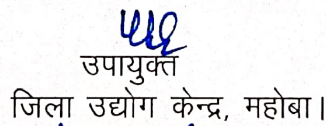 उपायुक्त
जिला उद्योग केन्द्र, महोबा।